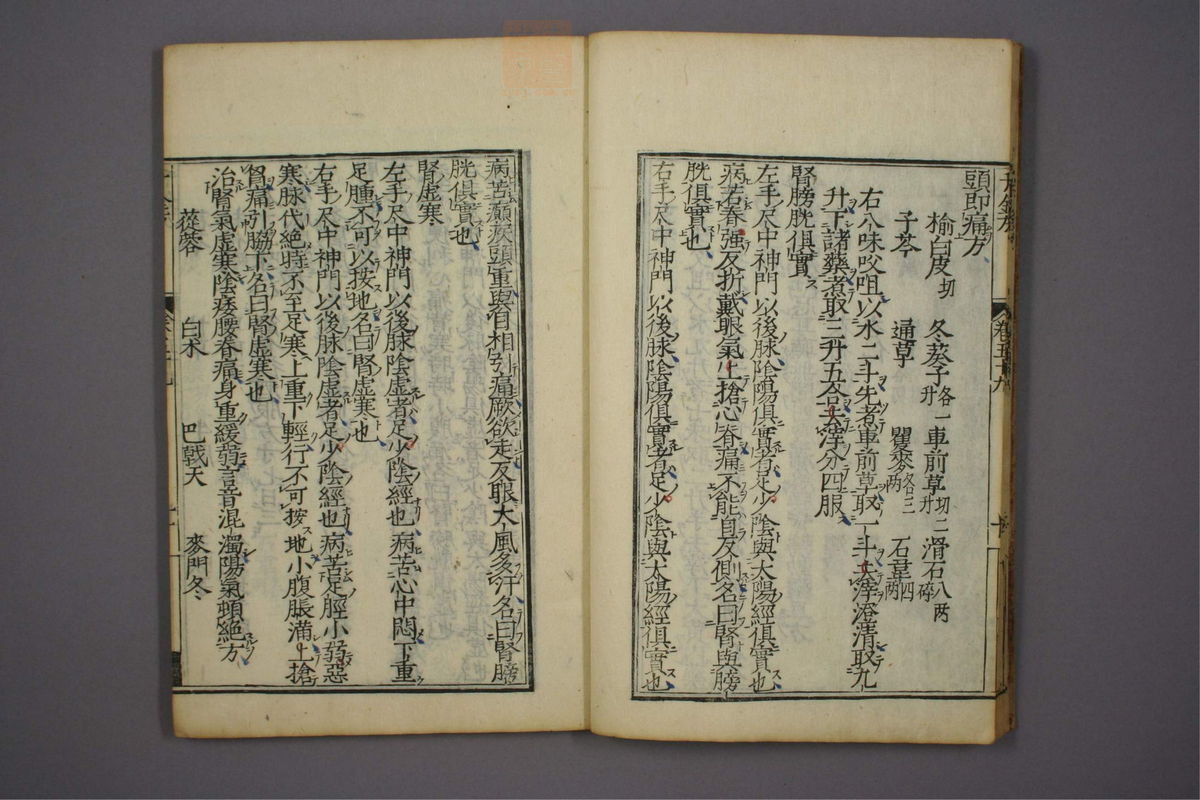 頭即痛方
榆白皮切 冬葵子各一升 車前草切二升 滑石八兩碎
子芩 通草 瞿麥各三兩 石韋四兩
右八味㕮咀以水二斗先煮車前草取一斗去滓澄清取九
升下諸藥煮取三升五合去滓分四服
腎膀胱俱實
左手尺中神門以後脉陰陽俱實者足少陰與太陽經俱實也
病苦脊强反折戴眼氣上搶心脊痛不能自反側名曰腎與膀
胱俱實也
右手尺中神門以後脉陰陽俱實者足少陰與太陽經俱實也
病苦癲疾頭重與目相引痛厥欲走反眼大風多汗名曰腎膀
胱俱實也
腎虛寒
左手尺中神門以後脉陰虛者足少陰經也病苦心中悶下重
足腫不可以按地名曰腎虛寒也
右手尺中神門以後脉陰虛者足少陰經也病苦足脛小弱惡
寒脉代絶時不至足寒上重下輕行不可按地小腹脹滿上搶
胷痛引脇下名曰腎虛寒也
治腎氣虛寒陰痿腰脊痛身重緩弱言音混濁陽氣頓絶方
蓯蓉 白术 巴戟天 麥門冬